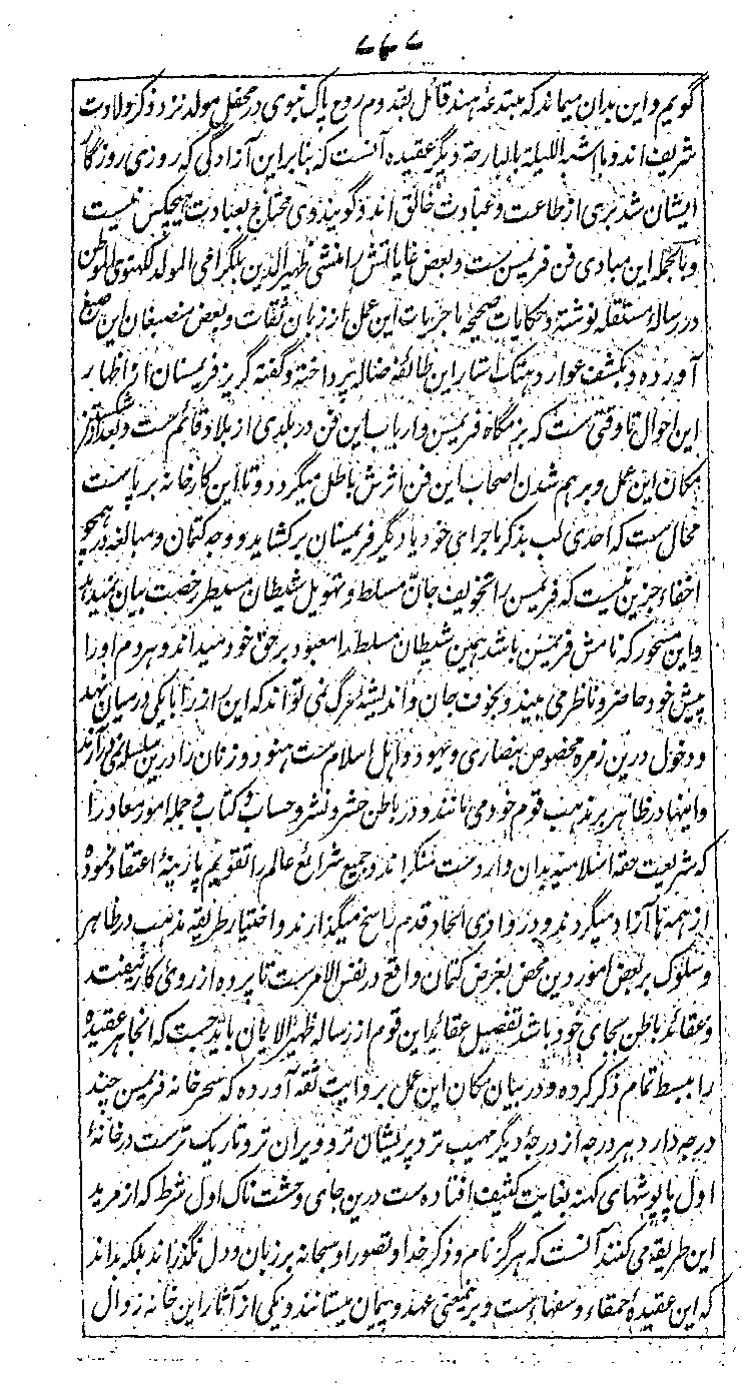 گویم و این بدان میماند که مبتدعۀ هند قائل بقدوم روح پاک نبوی در محفل مولد نزد ذکر ولادت
شریف اند و ما اشبه اللیلة بالبارحة دیگر عقیده آنست که بنابر این آزادگی که روزی روزگار
ایشان شد بری از طاعت و عبادت خالق اند و گویند وی محتاج بعبادت هیچکس نیست
و بالجمله این مبادی فن فریمسن ست و بعض غایاتش را منشی ظهیر الدین بلگرامی المولد لکهنوی الموطن
در رسالۀ مستقله نوشته و حکایات صحیحه ماجریات این عمل از زبان ثقات و بعض منصبغان این صبغ
آورده و بکشف عوار و هتک استار این طائفه ضاله پرداخته و گفته گریز فریمسنان از اظهار
این احوال تا وقتی ست که بزمگاه فریمسن و ارباب این فن در بلدی از بلاد قائم ست و بعد از شکستن
مکان این عمل و برهم شدن اصحاب این فن اثرش باطل میگردد و تا این کارخانه برپاست
محال ست که احدی لب بذکر ماجرای خود یا دیگر فریمسنان برکشاید و وجه کتمان و مبالغه در همچو
اخفاء جز این نیست که فریمسن را تخویف جان مسلط و تهویل شیطان مسیطر رخصت بیان نمیدهد
و این مسحور که نامش فریمسن باشد همین شیطان مسلط را معبود برحق خود میداند و هر دم او را
پیش خود حاضر و ناظر می بیند و بخوف جان و اندیشۀ مرگ نمی تواند که این راز را با یکی در میان نهد
و دخول درین زمره مخصوص بنصاری و یهود و اهل اسلام ست هنود و زنان را درین سلسله نمی آرند
و اینها در ظاهر بر مذهب قوم خود می مانند و در باطن حشر و نشر و حساب و کتاب و جمله امور معاد را
که شریعت حقه اسلامیه بدان وارد ست منکر اند و جمیع شرائع عالم را تقویم پارینه اعتقاد نموده
از همه ها آزاد میگردند و در وادی الحاد قدم راسخ میگذارند و اختیار طریقه مذهب در ظاهر
و سلوک بر بعض امور دین محض بغرض کتمان واقع در نفس الامر ست تا پرده از روی کار نیفتد
و عقائد باطن بجای خود باشد تفصیل عقائد این قوم از رساله ظهیر الایمان باید جست که انجا هر عقیده
را ببسط تمام ذکر کرده و در بیان مکان این عمل بروایت ثقه آورده که سحر خانه فریمسن چند
درجه دارد هر درجه از درجۀ دیگر مهیب تر و پریشان تر و ویران تر و تاریک تر ست در خانۀ
اول پاپوشهای کهنه بغایت کثیف افتاده ست درین جای وحشت ناک اول شرط که از مرید
این طریقه می کنند آنست که هرگز نام و ذکر خدا و تصور او سبحانه بر زبان و دل نگذراند بلکه بداند
که این عقیده احمقاء و سفهاء ست و بر ینمعنی عهد و پیمان میستانند و یکی از آثار این خانه زوال